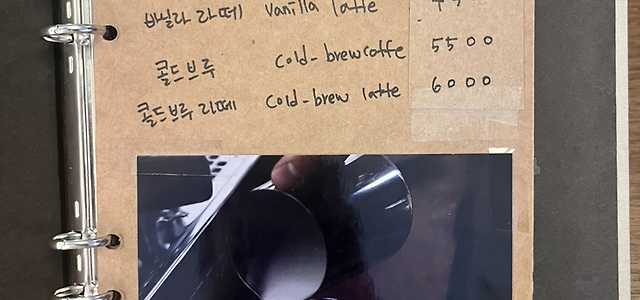 바닐라 라떼 Vanilla latte
콜드브루 cold-brew coffe 5500
콜드브루 라떼 cold-brew latte 6000